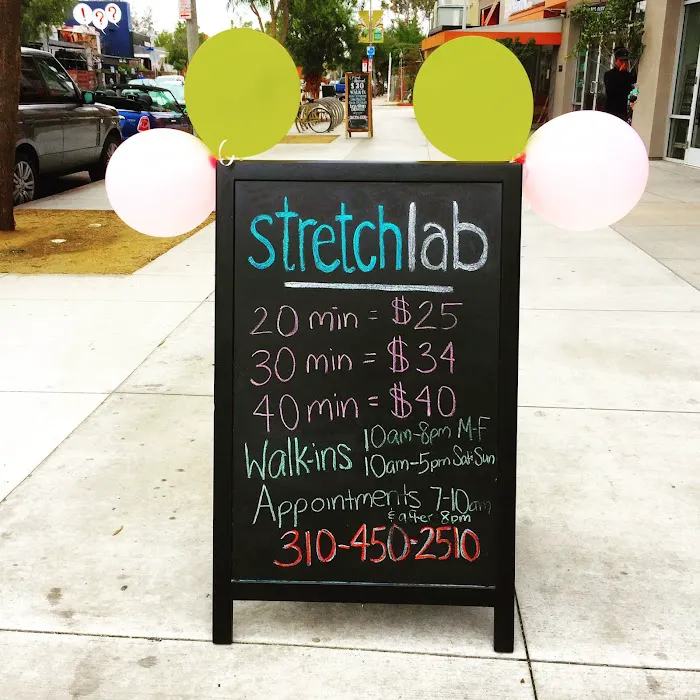 stretchlab
20 min = $25
30 min = $34
40 min = $40
Walk-ins 10am-8pm M-F
10am-5pm Sat&Sun
Appointments 7-10am
& after 8pm
310-450-2510